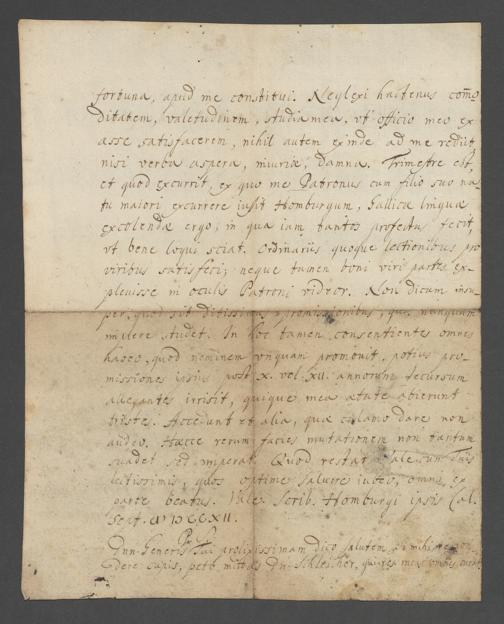 fortuna, apud me constitui. Neglexi hactenus com̄o
ditatem, valetudinem, studia mea, vt officio meo ex
asse satisfacerem, nihil autem exinde ad me redijt
nisi verba aspera, iniuriæ, damna. Trimestre est,
et quod excurrit, ex quo me Patronus cum filio suo na
tu maiori excurrere iussit Homburgum, Gallicæ linguæ
excolendæ ergo, in qua iam tantos profectus fecit,
vt bene loqui sciat. Ordinariis quoque lectionibus pro
viribus satisfeci; neque tamen boni viri partes ex
plevisse in oculis Patroni videor. Non dicam insu
per, quod sit ditissimus promissionibus, quas nunquam
implere studet. In hoc tamen consentientes omnes
habeo, quod neminem vnquam promovit, potius pro
missiones ipsius post X. vel XII. annorum decursum
allegantes irrisit, quique mea ætate abierunt
tristes. Accedunt et alia, quæ calamo dare non
audeo. Hæcce rerum facies mutationem non tantum
suadet sed imperat. Quod restat Vale cum Tuis
lectissimis, quos optime salvere iubeo, omni ex
parte beatus. Vale. Scrib. Homburgi ipsis Cal.
Sept. MDCCXII.
Dnn. Generis Tuis prolixissimam dico salutem, si mihi respon
dere cupis, peto mittas Dn. Schleicher, qui res meas omnes curat.